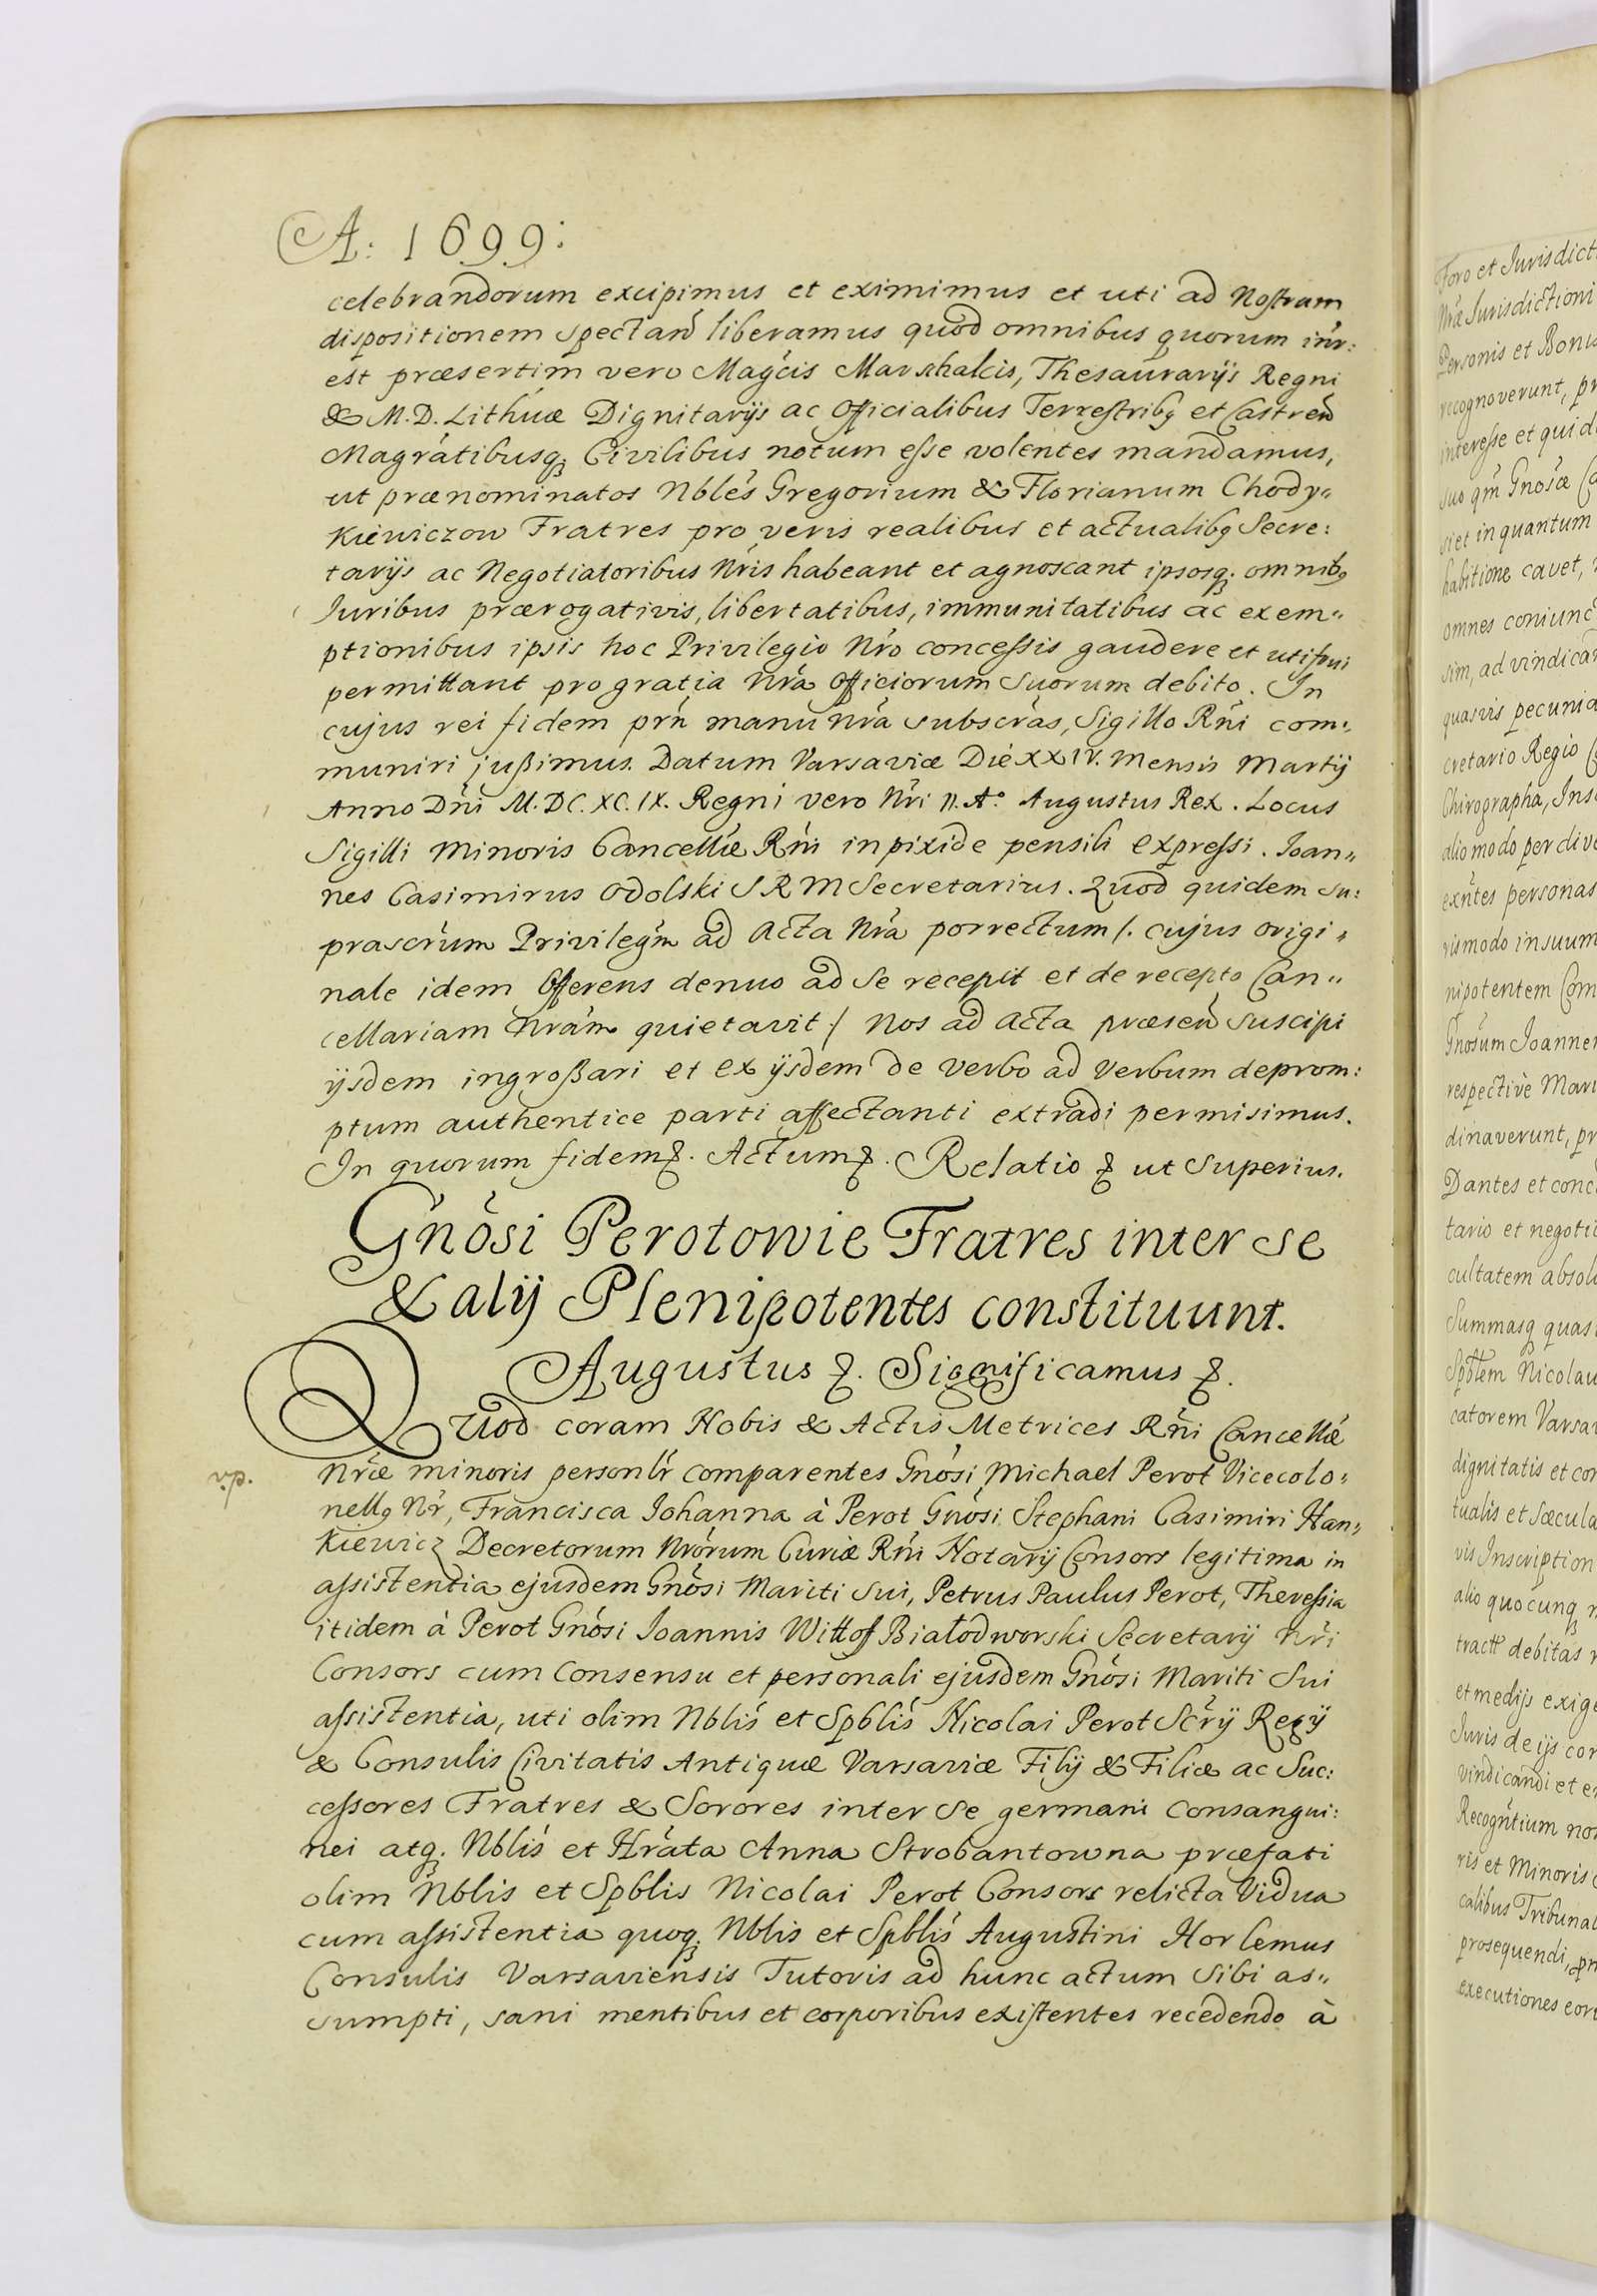 A: 1699:
celebrandorum excipimus et eximimus et uti ad Nostram
dispositionem spectañ liberamus quod omnibus quorum intr:
est præsertim vero Magcis Marschalcis, Thesaurarijs Regni
& M. D. Lithuæ Dignitarijs ac Officialibus Terrestribq et Castreñ
Magratibusq; Civilibus notum esse volentes mandamus,
ut prænominatos Nbles Gregorium & Florianum Chody"
Kiewiczow Fratres pro veris realibus et actualibq Secre:
tarijs ac Negotiatoribus Nris habeant et agnoscant ipsosq; omnibq
Iuribus prærogativis, libertatibus, immunitatibus ac exem"
ptionibus ipsis hoc Privilegio Nro concessis gaudere et uti frui
permittant pro gratia Nra Officiorum suorum debito. In
cujus rei fidem prñ manu Nra subscras, Sigillo Rñi com"
muniri jußimus. Datum Varsaviæ Die XXIV. Mensis Martij
Anno Dñi M.DC.XC.IX. Regni vero Nri II. Aº. Augustus Rex. Locus
Sigilli Minoris Cancellæ Rñi in pixide pensili expressi. Ioan"
nes Casimirus Odolski S R M Secretarius. Quod quidem su:
prascrum Privilegm ad Acta Nra porrectum /. cujus origi"
nale idem Offerens denuo ad se recepit et de recepto Can"
cellariam Nram quietavit ./ Nos ad Acta præseñ suscipi
ijsdem ingroßari et ex ijsdem de verbo ad verbum deprom:
ptum authentice parti affectanti extradi permisimus.
In quorum fidem &. Actum &. Relatio & ut superius.
Gnosi Perotowie Fratres inter se
& alij Plenipotentes constituunt.
Augustus &. Significamus &.
Quod coram Nobis & Actis Metrices Rñi Cancellæ
vp.
Nræ minoris personlr comparentes Gnosi Michael Perot Vicecolo"
nellq Nr, Francisca Iohanna à Perot Gnosi Stephani Casimiri Han"
Kiewicz Decretorum Nrorum Curiæ Rñi Notarij Consors legitima in
assistentia ejusdem Gnosi Mariti sui, Petrus Paulus Perot, Theressia
itidem à Perot Gnosi Ioannis Wittof Białodworski Secretarij Nri
Consors cum Consensu et personali ejusdem Gnosi Mariti Sui
assistentia, uti olim Nblis et Spblis Nicolai Perot Scrij Regij
& Consulis Civitatis Antiquæ Varsaviæ Filij & Filiæ ac Suc:
cessores Fratres & Sorores inter se germani Consangui:
nei atq; Nblis et Hrata Anna Strobantowna præfati
olim Nblis et Spblis Nicolai Perot Consors relicta Vidua
cum assistentia quoq; Nblis et Spblis Augustini Horlemus
Consulis Varsaviensis Tutoris ad hunc actum Sibi as"
sumpti, sani mentibus et corporibus existentes recedendo à
Foro et Iurisdict
Nræ Iurisdictioni
Personis et Bonis
recognoverunt, pr
interesse et qui d
suo qm Gnosæ Ca
si et in quantum
habitione cavet,
omnes coniunc
sim, ad vindica
quasvis pecunia
cretario Regio
Chirographa, Ins
alio modo per div
exntes personas
vismodo in suum
nipotentem Com
Gnosum Ioannem
respective Mari
dinaverunt, pr
Dantes et conc
tario et negoti
cultatem absol
Summasq quas
Spblem Nicolau
catorem Varsa
dignitatis et con
tualis et sæcula
vis Inscription
alio quocunq
tractt debitas
et medijs exige
Iuris de ijs con
vindicandi et e
Recogntium no
ris et Minoris
calibus Tribunal
prosequendi,
executiones eor